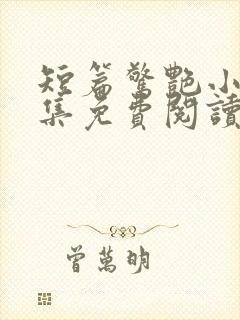 短篇驚艷小
集免費閱讀
曾萬明